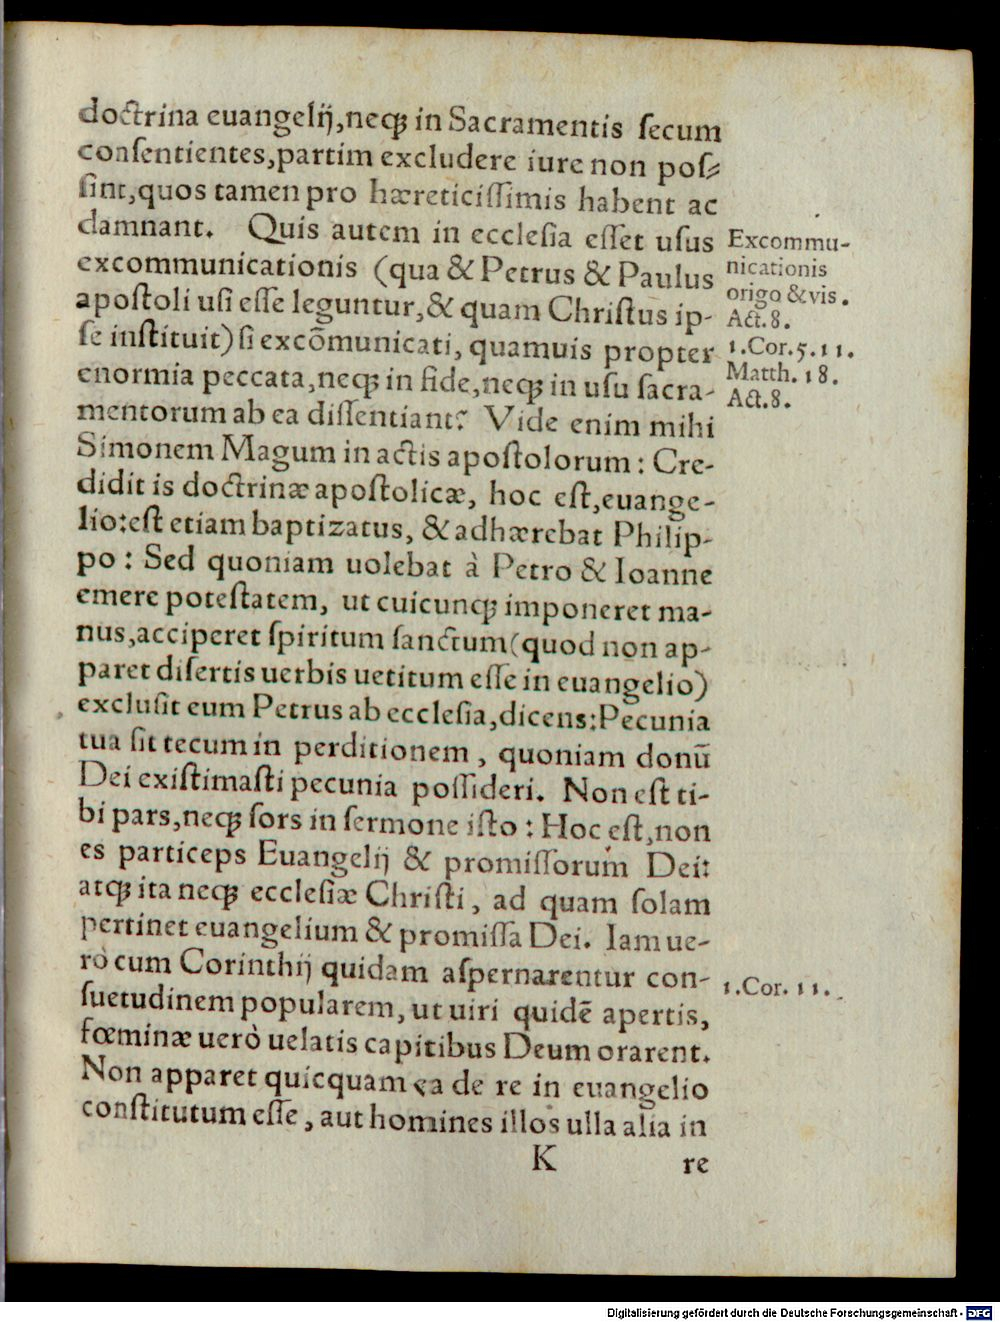 doctrina euangelij,neqꝫ in Sacramentis ſecum
conſentientes,partim excludere iure non poſ⸗
ſint,quos tamen pro hæreticiſſimis habent ac
damnant. Quis autem in eccleſia eſſet uſus
excommunicationis (qua & Petrus & Paulus
apoſtoli uſi eſſe leguntur,& quam Chriſtus ip-
ſe inſtituit) ſi excõmunicati, quamuis propter
enormia peccata,neqꝫ in fide,neqꝫ in uſu ſacra-
mentorum ab ea diſſentiant? Vide enim mihi
Simonem Magum in actis apoſtolorum: Cre-
didit is doctrinæ apoſtolicæ, hoc eſt,euange-
lio:eſt etiam baptizatus, & adhærebat Philip-
po: Sed quoniam uolebat à Petro & Ioanne
emere poteſtatem, ut cuicunqꝫ imponeret ma-
nus,acciperet ſpiritum ſanctum(quod non ap-
paret diſertis uerbis uetitum eſſe in euangelio)
excluſit eum Petrus ab eccleſia,dicens:Pecunia
tua ſit tecum in perditionem, quoniam donũ
Dei exiſtimaſti pecunia poſſideri. Non eſt ti-
bi pars,neqꝫ ſors in ſermone iſto: Hoc eſt,non
es particeps Euangelij & promiſſorum Dei:
atqꝫ ita neqꝫ eccleſiæ Chriſti, ad quam ſolam
pertinet euangelium & promiſſa Dei. Iam ue-
rò cum Corinthij quidam aſpernarentur con-
ſuetudinem popularem, ut uiri quidẽ apertis,
fœminæ uerò uelatis capitibus Deum orarent.
Non apparet quicquam ea de re in euangelio
conſtitutum eſſe, aut homines illos ulla alia in
K re
Excommu-
nicationis
origo & vis.
Act.8.
1.Cor.5.11.
Matth.18.
Act.8.
1.Cor.11.
Digitalisierung gefördert durch die Deutsche Forschungsgemeinschaft - DFG